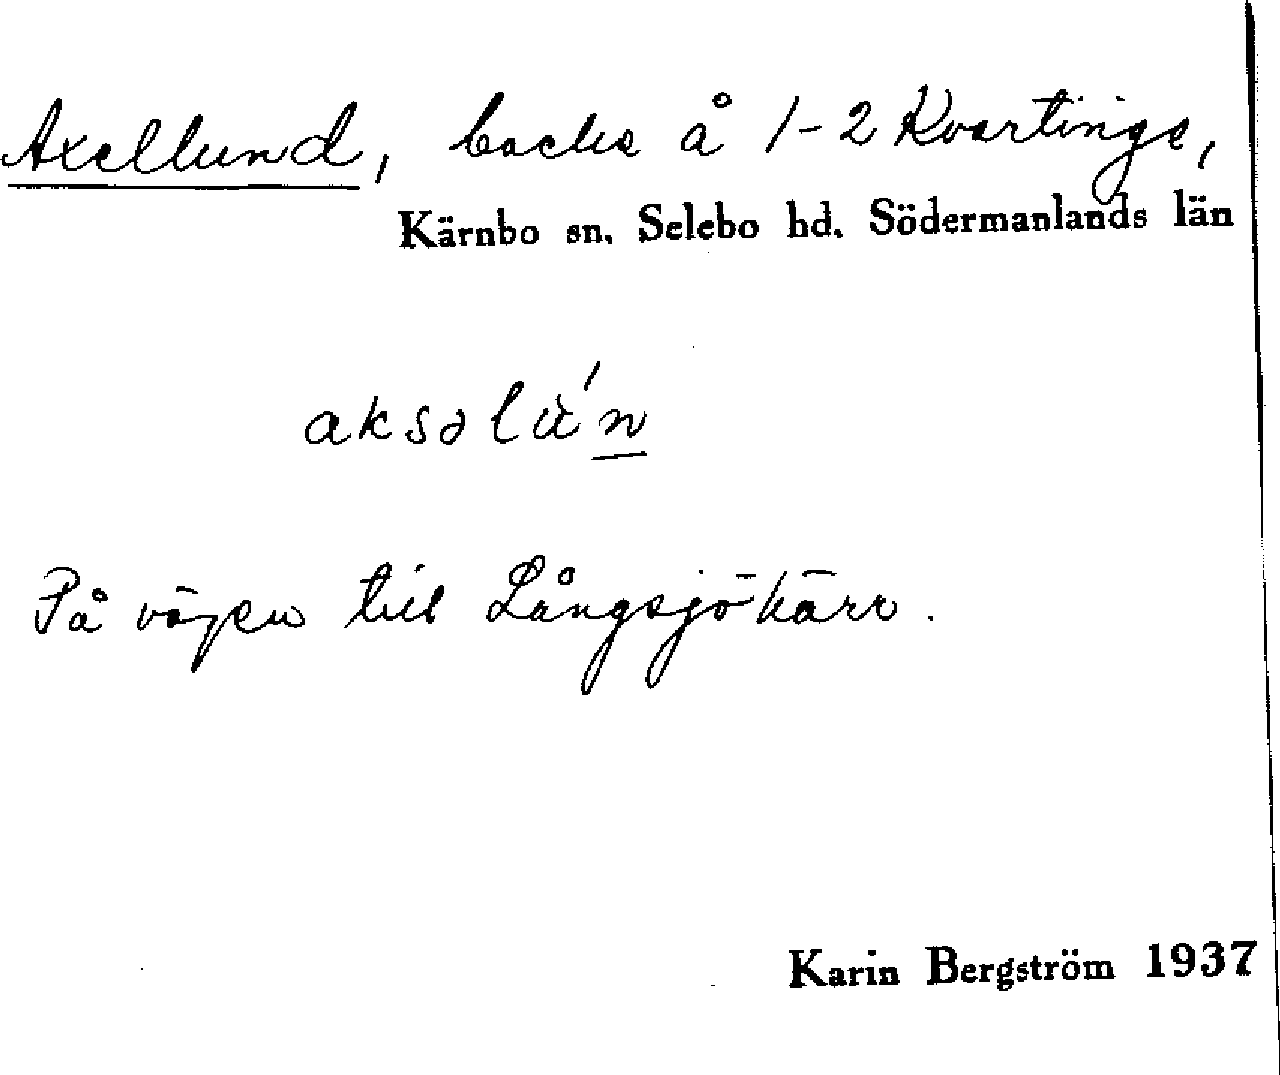 Axellund, backe å 1-2 Kvartinge,
Kärnbo sn. Selebo hd. Södermanlands län
aksəlù´n
På vägen till Långsjökärr.
Karin Bergström 1937